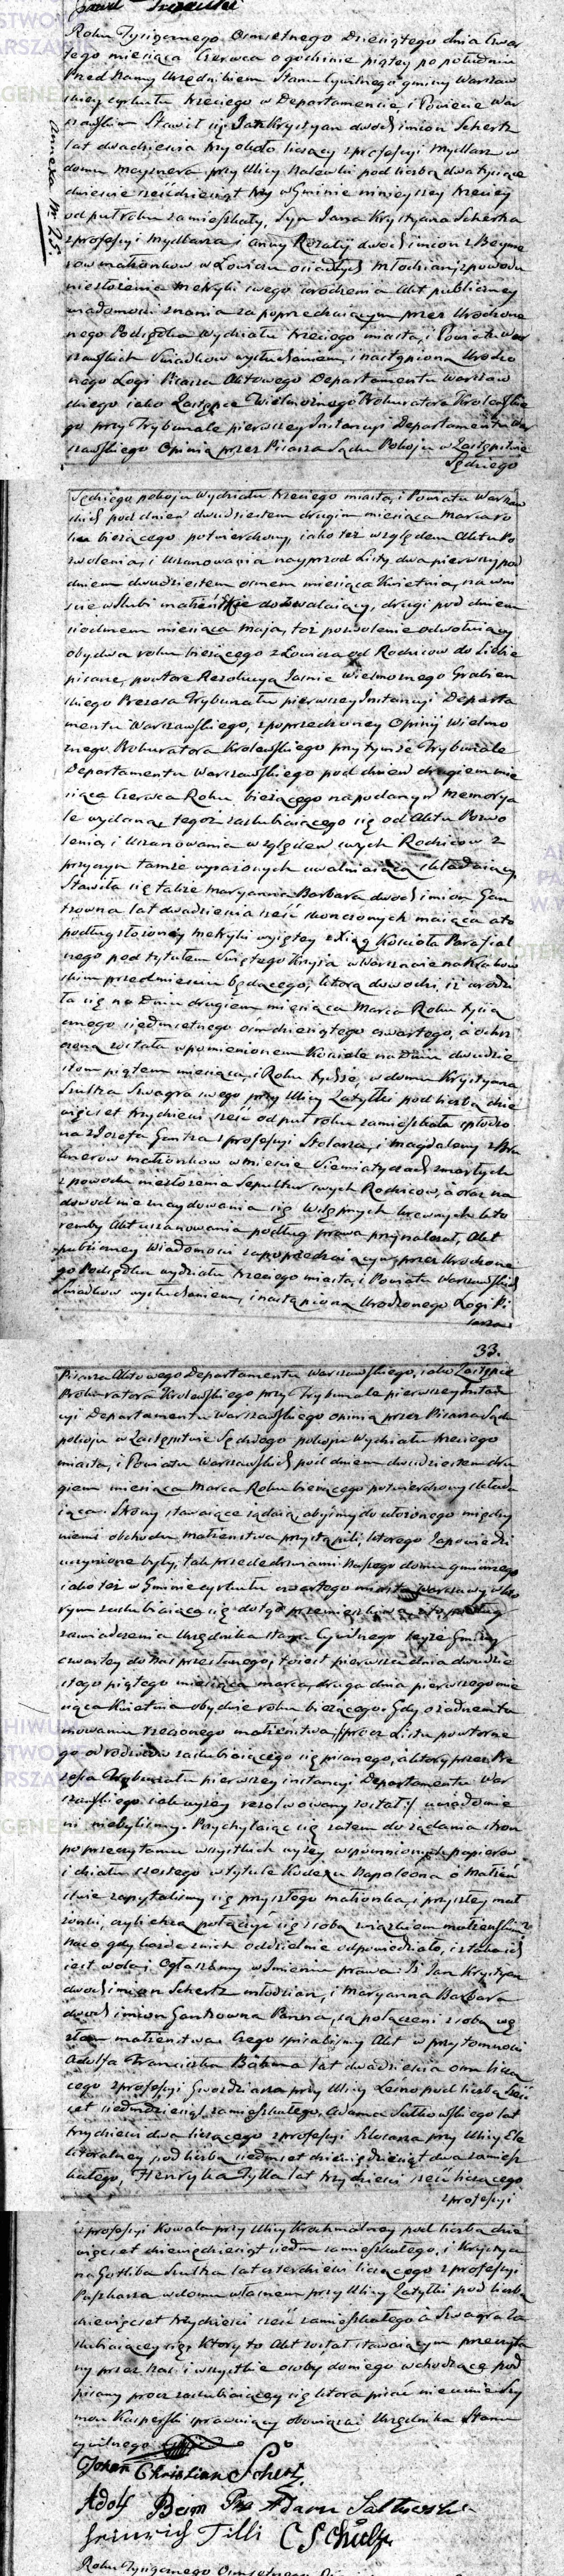 Roku Tysiącznego Ośmsetnego Dziesiątego dnia Czwar
tego miesiąca Czerwca o godzinie piątey po południu
Przed Nami Urzędnikiem Stanu Cywilnego gminy Warszaw
skiey cyrkułu trzeciego w Departamencie i Powiecie War
szawskim Stawił się Jan Krystyan dwoch imion Schertz
lat dwadzieścia trzy około liczący z profesyi Mydlarz w
domu Maysnera przy Ulicy Nalewki pod liczbą dwa tysiące
dwieście sześćdziesiąt trzy w Gminie ninieyszey trzeciey
od puł roku zamieszkały, Syn Jana Krystyana Schertza
z profesyi Mydlarza i Anny Rozalij dwoch imion z
małżonkow w Łowiczu osiadłych Młodzian z powodu
niezłożenia Metryki swego urodzenia Akt publiczney
wiadomości znania za poprzedzaiącym przez Urodzone
nego Podsędka Wydziału trzeciego miasta, i Powiatu War
szawskich Swiadkow wysłuchaniem, i nastąpioną Urodzo
nego Logi Pisarza Aktowego Departamentu Warszaw
skiego iako Zastępcę Wielmożnego Prokuratora Krolewskie
go przy Trybunale pierwszey Instancyi Departamentu War
szawskiego Opinią przez Pisarza Sądu Pokoju w Zastępstwie
Sędziego
Annexa Nr 25.
Sędziego pokoju Wydziału trzeciego miasta, i Powiatu Warszaw
skich pod dniem dwudziestem drugim miesiąca Marca ro
ku bieżącego potwierdzony, iako też względem Aktu Po
zwolenia, i Uszanowania nayprzod Listy dwa pierwszy pod
dniem dwudziestem osmem miesiąca Kwietnia, na wni
ście w śluby małżeńskie dozwalaiący, drugi pod dniem
siodmem miesiąca Maja, toż pozwolenie odwołuiący
obydwa roku bieżącego z Łowicza od Rodzicow do Siebie
pisane, powtore Rezolucyą Jaśnie Wielmożnego Grabien
skiego Prezesa Trybunału pierwszey Instancyi Departa
mentu Warszawskiego, z poprzedzoney Opinij Wielmo
żnego Prokuratora Krolewskiego przy tymże Trybunale
Departamentu Warszawskiego pod dniem drugiem mie
siąca Czerwca Roku bieżącego na podany Memorya
le wydaną, tegoż zaślubiaiącego się od Aktu Pozwo
lenia, i Uszanowania względem swych Rodzicow z
przyczyn tamże wyrażonych uwalniaiącą składaiący,
Stawiła się także Maryanna Barbara dwoch imion Gan
tzowna lat dwadzieścia sześć skończonych maiąca a to
podług złożoney Metryki wyiętey z Xiąg Kościoła Parafial
nego pod tytułem Świętego Krzyża w Warszawie na Krakow
skim przedmieściu będącego, ktorą dowodzi, iż urodzi
ła się na Dniu drugiem miesiąca Marca Roku tysią
cznego siedmsetnego ośmdziesiątego czwartego, a ochrz
czona została w pomienionem Kościele na Dniu dwudzie
stem piątem miesiąca, i Roku tychże, w domu Krystyana
Szultza Szwagra swego przy Ulicy Zatylki pod liczbą dzie
więćset trzydzieści sześć od puł roku zamieszkała spłodzo
na z Jozefa Gantza z profesyi Stolarza, i Magdaleny z
małżonkow w mieście Siemiatyczach zmarłych
z powodu niezłożenia Sepultur swych Rodzicow, a oraz na
dowod nie znaydowania się Wstępnych krewnych kto
remby Akt uszanowania podług prawa przynależał, Akt
publiczney Wiadomości za poprzedzaiącym przez Urodzone
go Podsędka wydziału trzeciego miasta, i Powiatu Warszawskich
Swiadkow wysłuchaniem, i nastąpioną Urodzonego Logi Pi
sarza
33.
Pisarza Aktowego Departamentu Warszawskiego, iako Zastępcę
Prokuratora Krolewskiego przy Trybunale pierwszey Instan
cyi Departamentu Warszawskiego opinią przez Pisarza Sądu
pokoju w Zastępstwie Sędziego pokoju Wydziału trzeciego
miasta, i Powiatu Warszawskich pod dniem dwudziestem dru
giem miesiąca Marca Roku bieżącego potwierdzony składa
iąca. Strony stawaiące żądaią, abyśmy do ułożonego między
niemi obchodu małżeństwa przystąpili, ktorego Zapowiedzi
uczynione były, tak przed drzwiami Naszego domu gminnego
iako też w Gminie cyrkułu czwartego miasta Warszawy w kto
rym zaślubiaiąca się dotąd przemieszkiwa a to podług
zaświadczenia Urzędnika Stanu Cywilnego teyże Gminy
czwartey do Nas przesłanego, to iest pierwsza dnia dwudzie
stego piątego miesiąca marca, druga dnia pierwszego mie
siąca Kwietnia obydwie roku bieżącego. Gdy o żadnem ta
mowaniu rzeczonego małżeństwa, /:procz Listu powtorne
go od rodzicow zaślubiaiącego się pisanego, a ktory przez Pre
zesa Trybunału pierwszey instancyi Departamentu War
szawskiego iak wyżey rezolwowany został:/ uwiadomie
ni niebyliśmy. Przychylaiąc się zatem do żądania stron
po przeczytaniu wszystkich wyżey wspomnionych papierow
i działu szostego w tytule Kodexu Napoleona o Małżeń
stwie zapytaliśmy się przyszłego małżonka, i przyszłey mał
żonki, czyli chcą połączyć się z sobą związkiem małżeńskim?
Na co gdy każde z nich oddzielnie odpowiedziało, iż taka ich
iest wola; Ogłaszamy w Imieniu prawa: Iż Jan Krystyan
dwoch imion Schertz młodzian, i Maryanna Barbara
dwoch imion Gantzowna Panna, są połączeni z sobą wę
złem małżeństwa. Czego spisaliśmy Akt w przytomności
Adolfa Franciszka Böhma lat dwadzieścia osm liczą
cego z profesyi Gwoździarza przy Ulicy Leśno pod liczbą
set siedmdziesiąt zamieszkałego, Adama Sutkowskiego lat
trzydzieści dwa liczącego z profesyi Slosarza przy Ulicy Ele
ktoralney pod liczbą siedmset dziewięćdziesiąt dwa zamiesz
kałego, Henryka Tylla lat trzydzieści sześć liczącego
z profesyi
z profesyi Kowala przy Ulicy Krochmalney pod liczbą dzie
więćset dziewięćdziesiąt siedm zamieszkałego, i Krystya
na Gotliba Szultza lat czterdzieści liczącego z profesyi
w domu własnem przy Ulicy Zatylki pod liczbą
dziewięćset trzydzieści sześć zamieszkałego a Szwagra Za
ślubiaiącey się; Ktory to Akt został stawaiącym przeczyta
ny przez Nas i wszystkie osoby do niego wchodzące pod
pisany procz zaślubiaiącey się ktora pisać nie umie Szy
mon Kasperski sprawuiący obowiązki Urzędnika Stanu
cywilnego
Johan Christian Schertz
Adolf Bem Adam Sulkowski
Heinrich Tilli C G Schultz
Roku Tysiącznego Osmsetnego